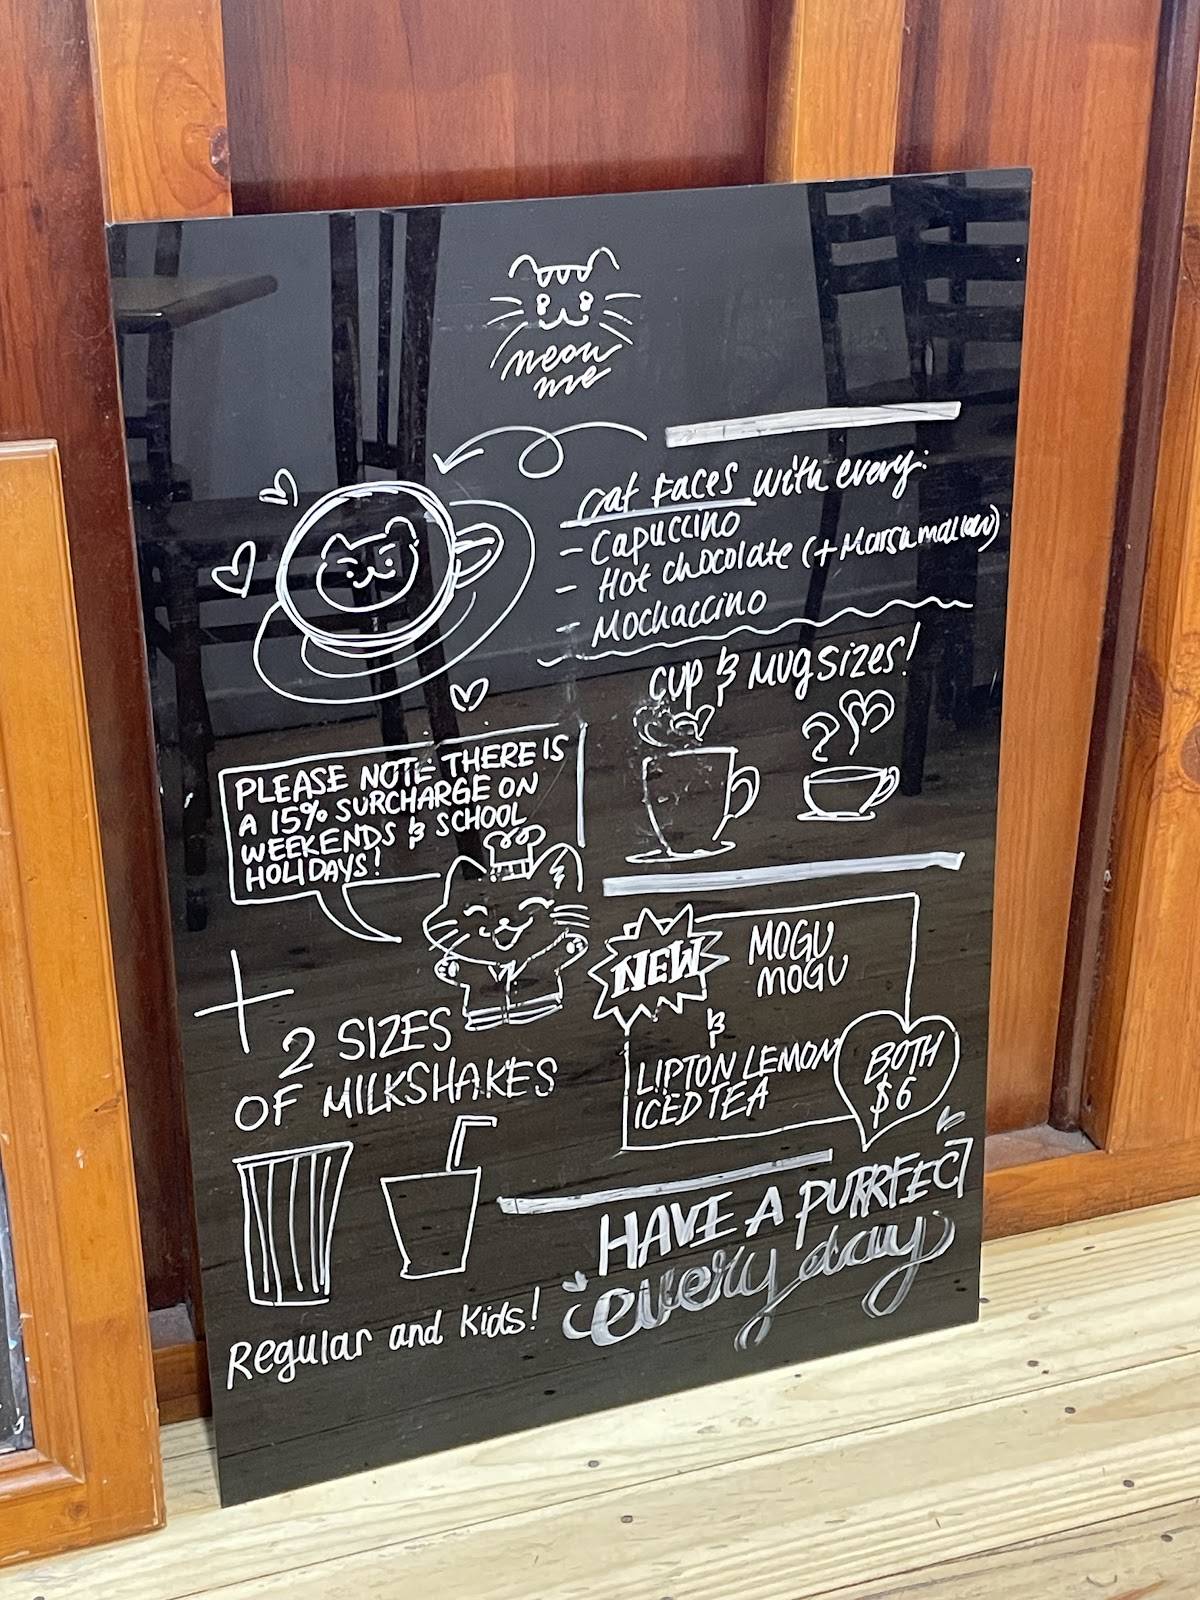 meow
me
Cat Faces with every:
- Capuccino
- Hot chocolate (+ Marshmallow)
- Mochaccino
Cup & Mug sizes!
PLEASE NOTE THERE IS
A 15% SURCHARGE ON
WEEKENDS & SCHOOL
HOLIDAYS!
+
2 SIZES
OF MILKSHAKES
Regular and Kids!
NEW
MOGU
MOGU
&
LIPTON LEMON
ICED TEA
BOTH
$6
HAVE A PURRFECT
every day